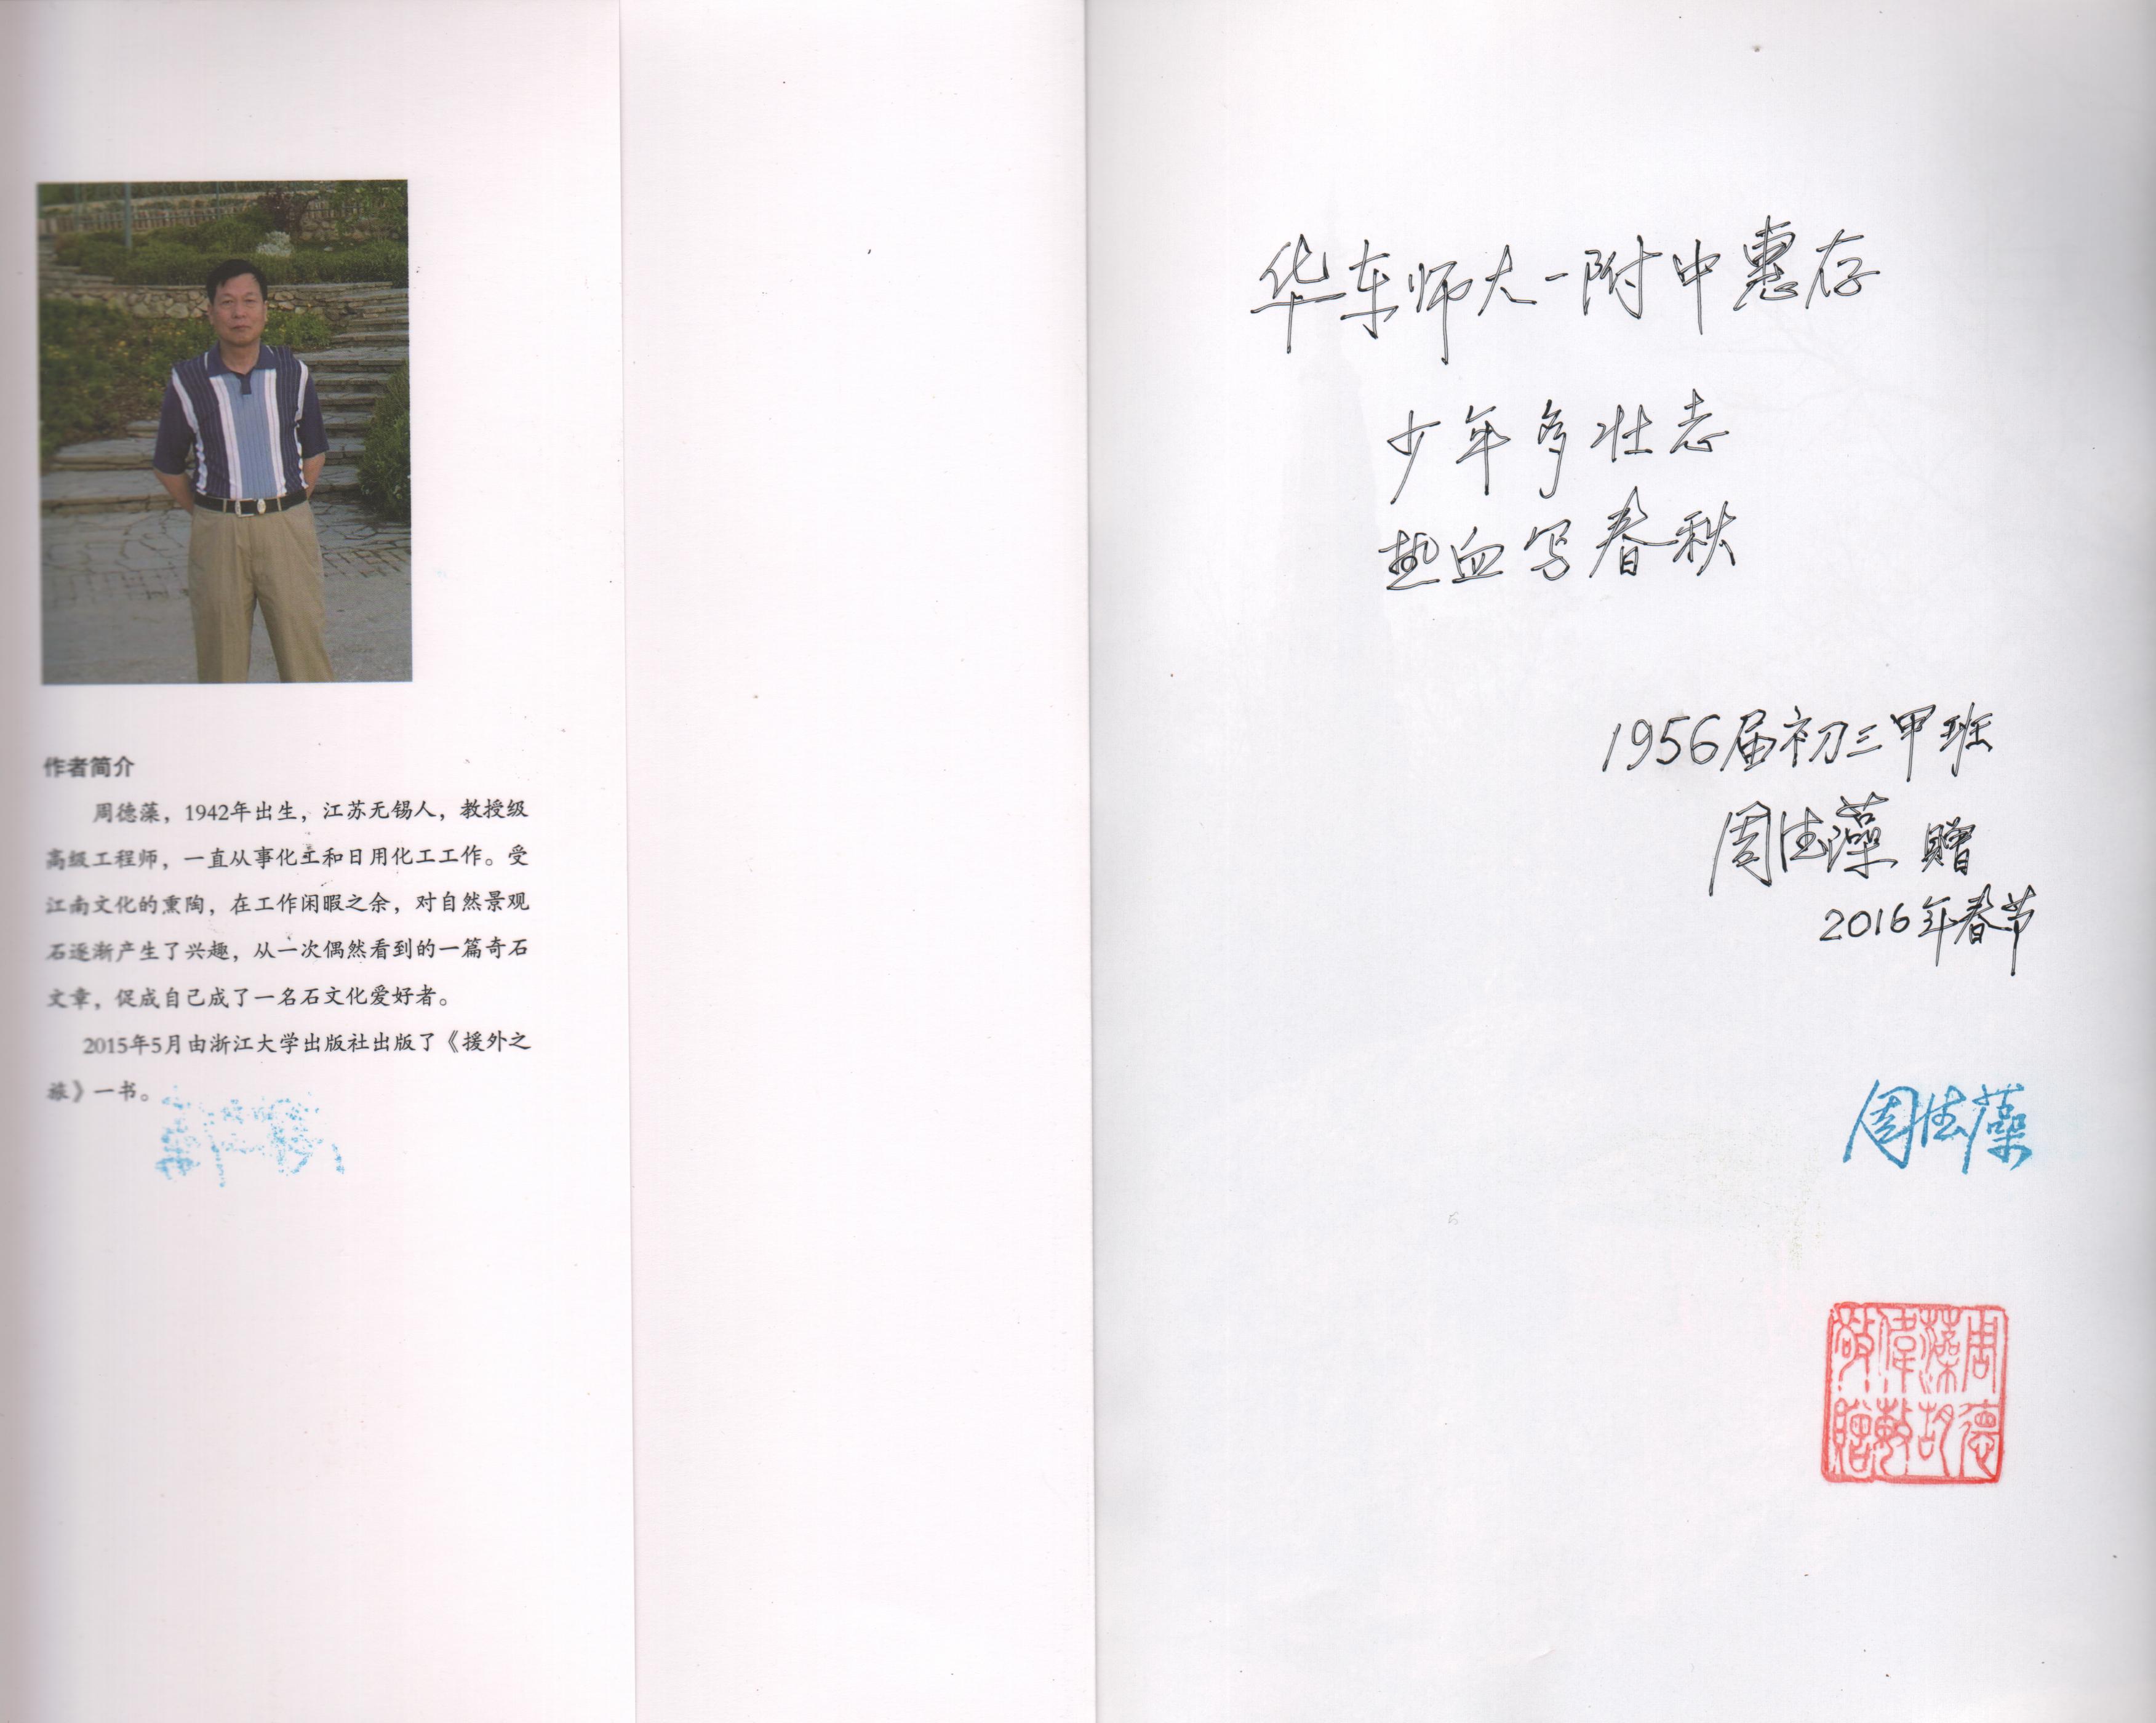 作者简介
周德藻，1942年出生，江苏无锡人，教授级
高级工程师，一直从事化工和日用化工工作。受
江南文化的熏陶，在工作闲暇之余，对自然景观
石逐渐产生了兴趣，从一次偶然看到的一篇奇石
文章，促成自己成了一名石文化爱好者。
2015年5月由浙江大学出版社出版了《援外之
旅》一书。
华东师大一附中惠存
少年多壮志
热血写春秋
1956届初三甲班
周德藻 赠
2016年春节
周德藻
周德
藻胡
偉敏
敬贈